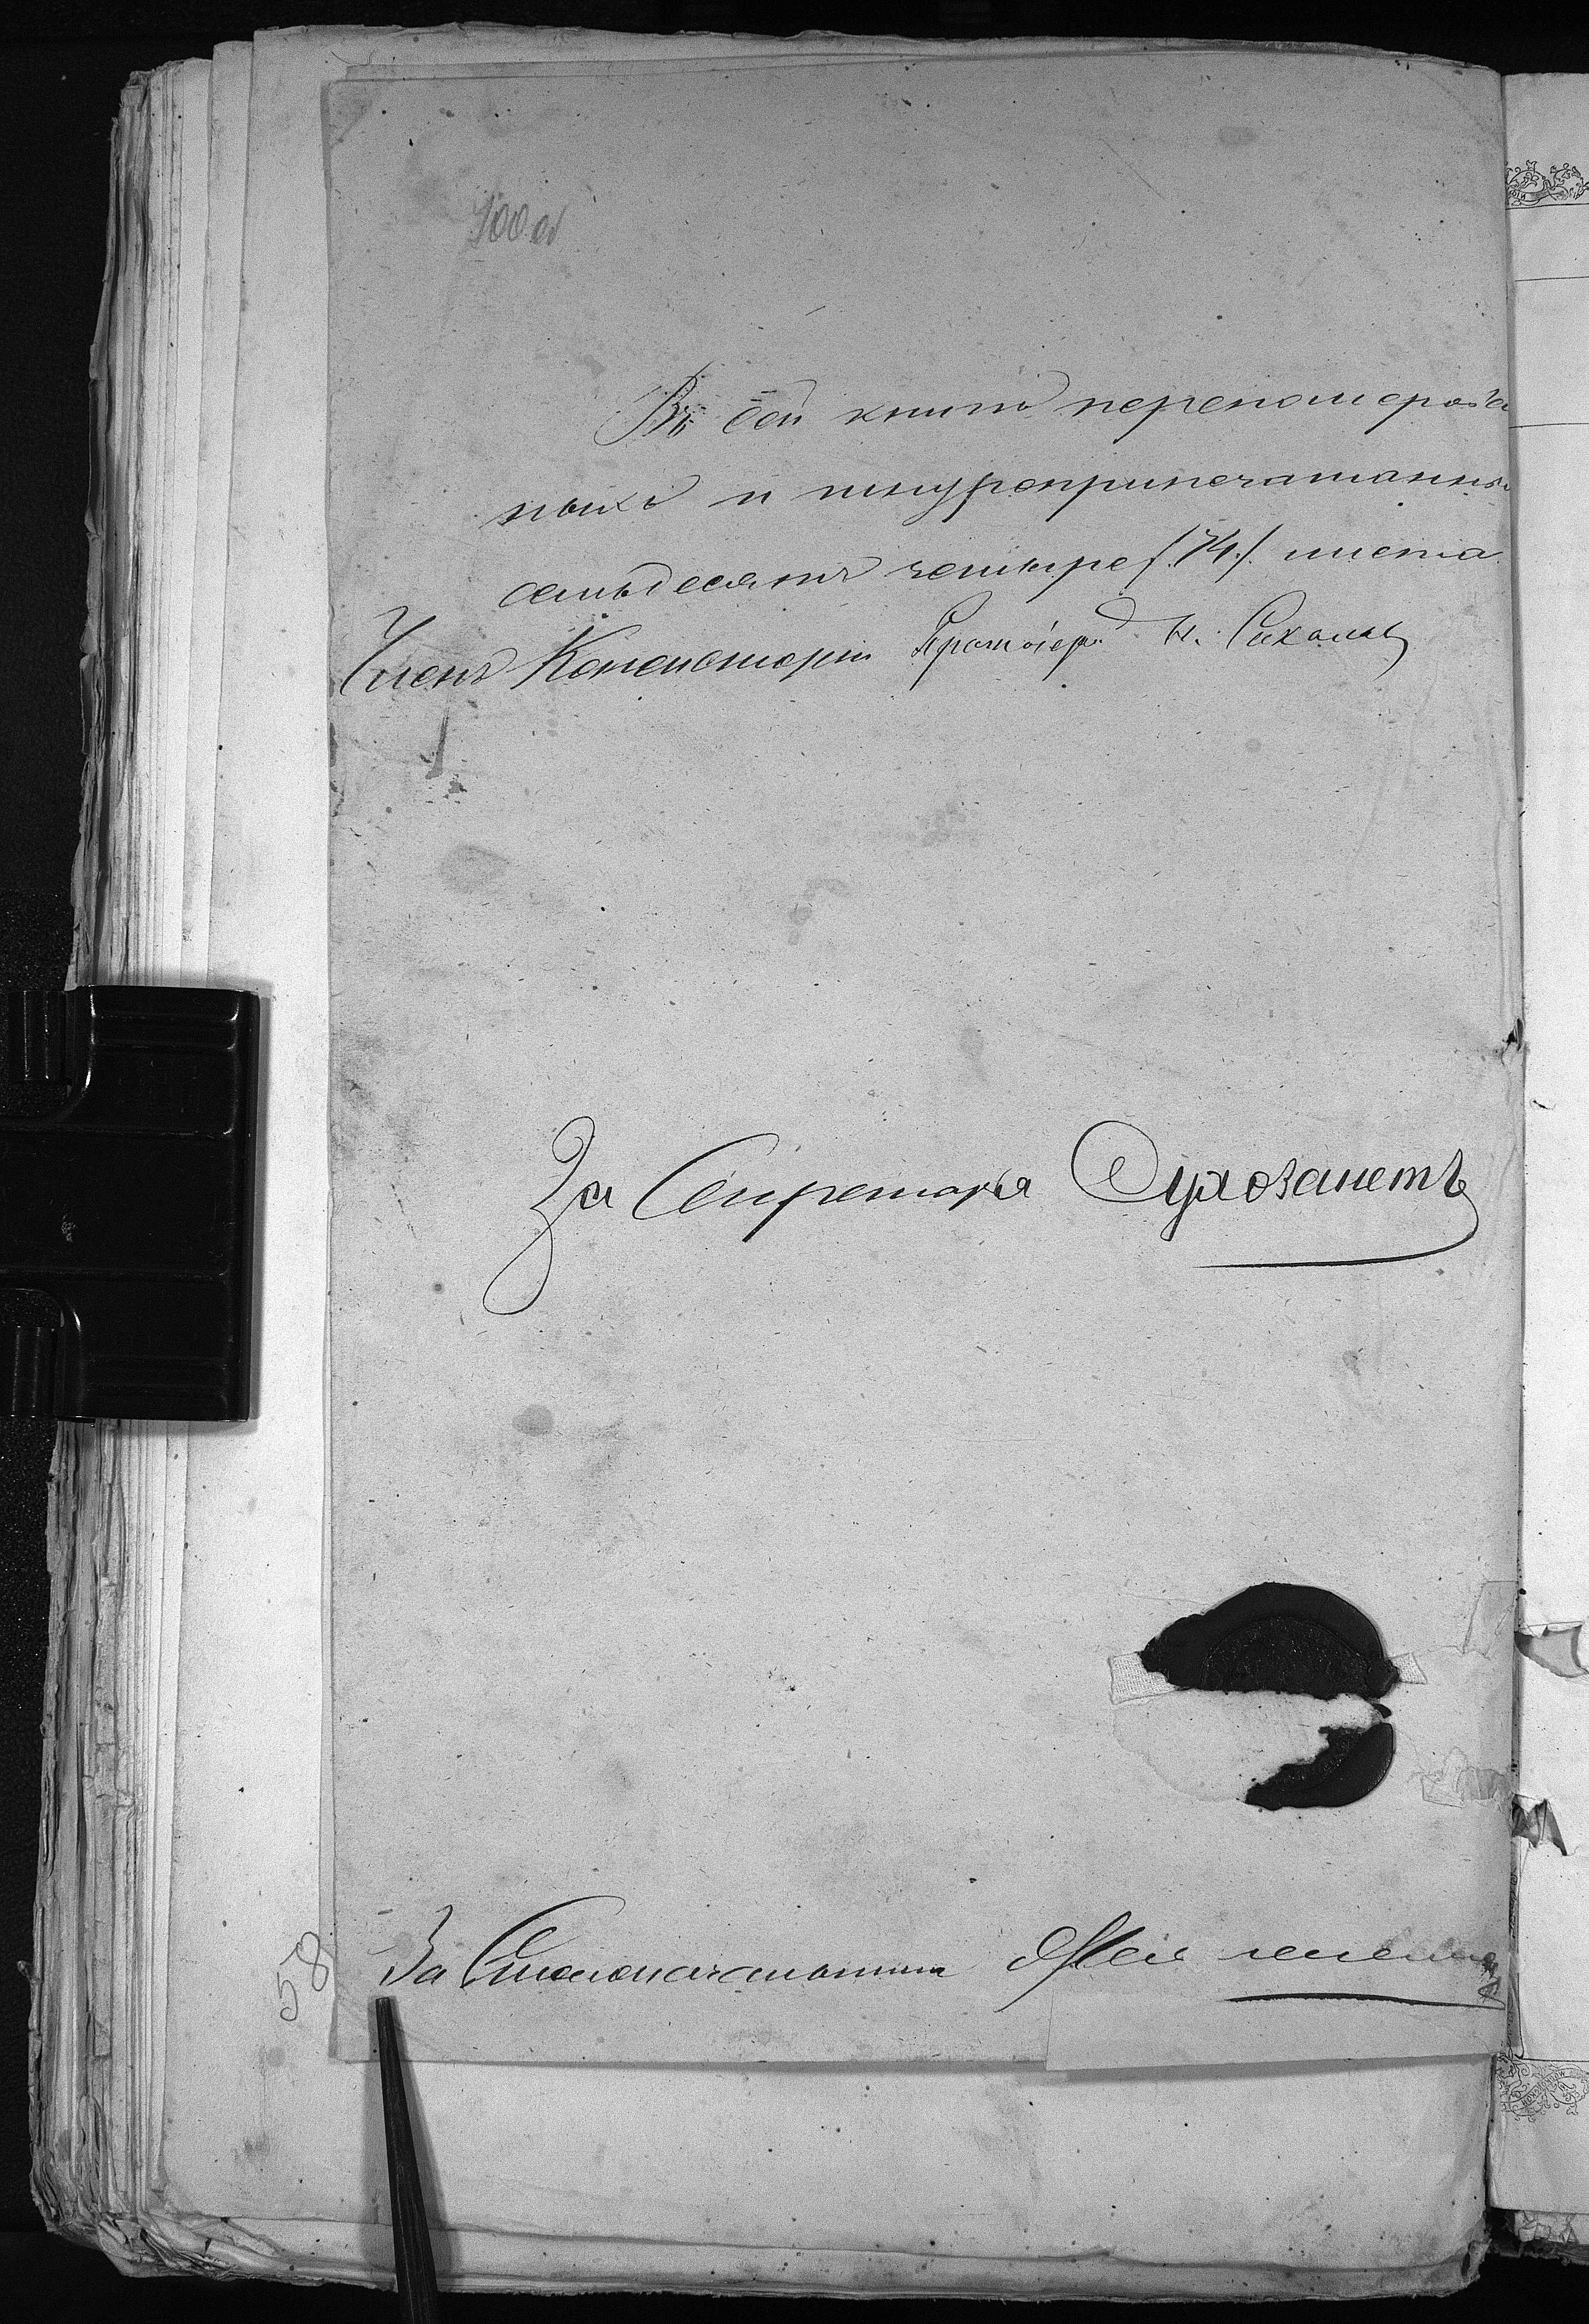 400 об
Въ сей книгѣ перенумерова
ныхъ и шнуроприпечатанны
семьдесятъ четыре /74/. листа
Членъ Консисторіи Протоіерей Н.
За Секретаря Сухозанетъ
За Столоначальника
58